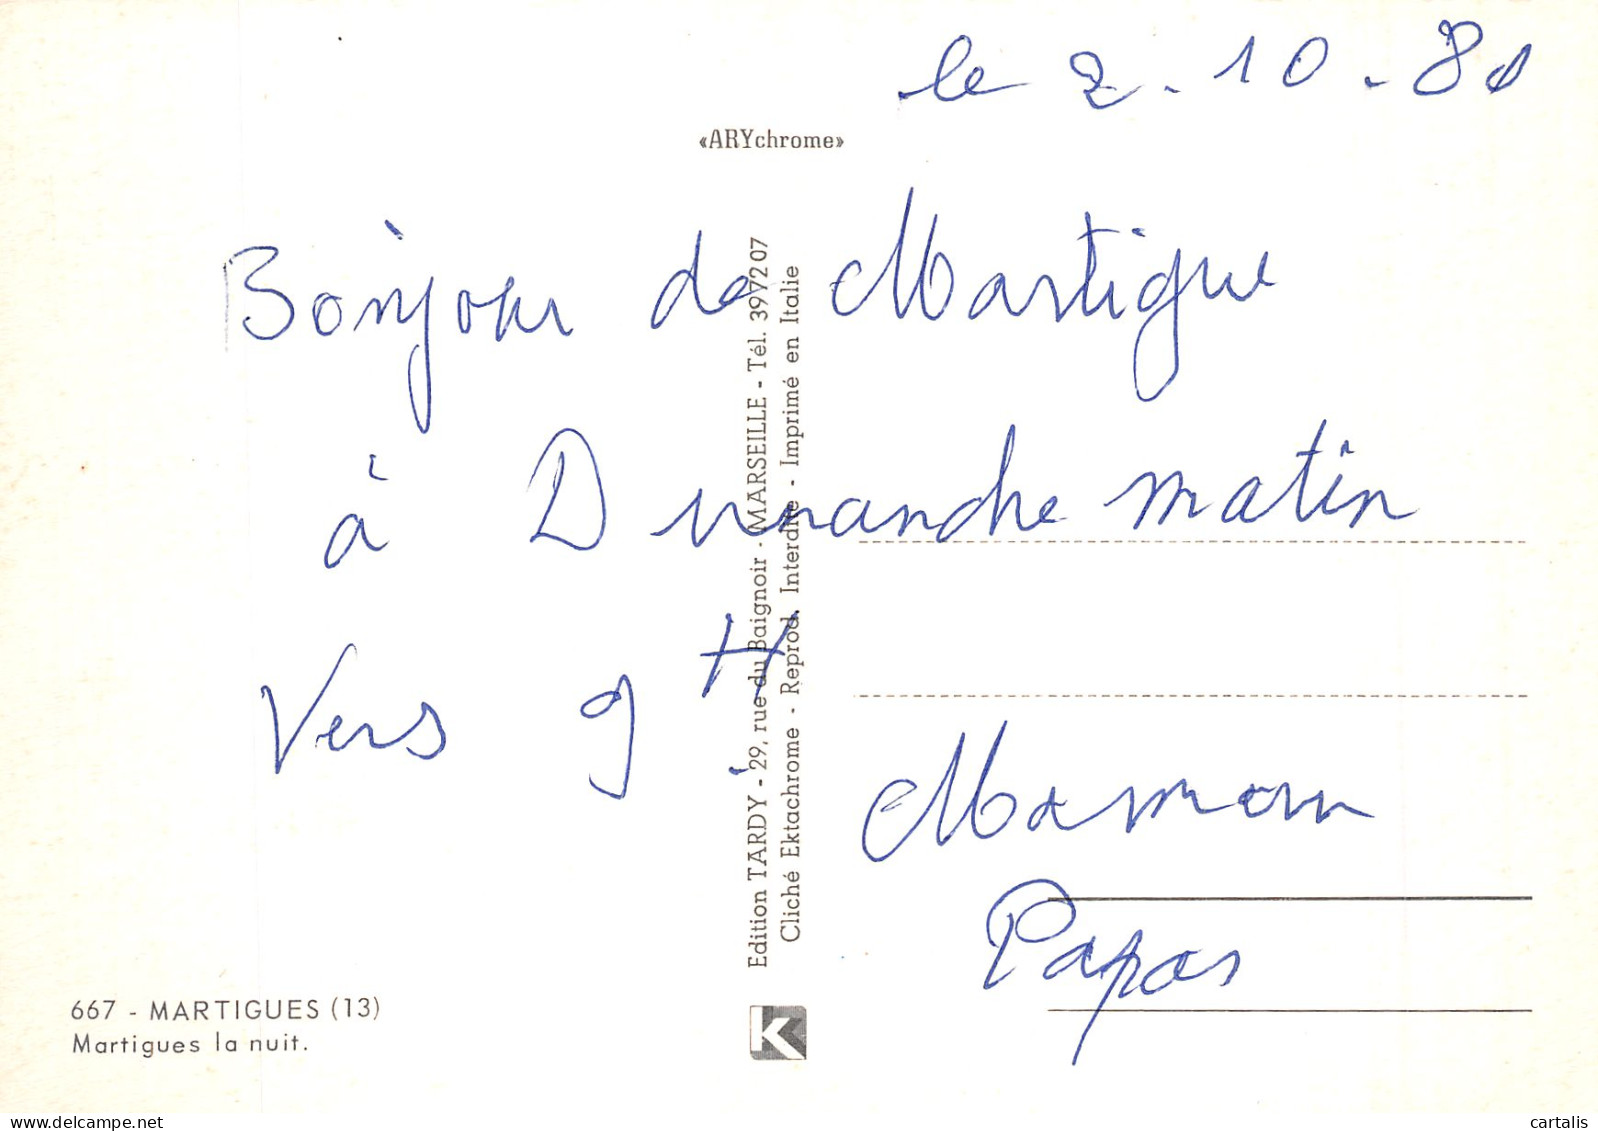 le 2.10.81
«ARYchrome»
Bonjour de Martigue
à Dimanche matin
Vers 9 H
Maman
Papas
Edition TARDY - 29, rue du Baignoir - MARSEILLE - Tél. 397207
Cliché Ektachrome - Reprod. Interdite - Imprimé en Italie
667 - MARTIGUES (13)
Martigues la nuit.
K
cartalis